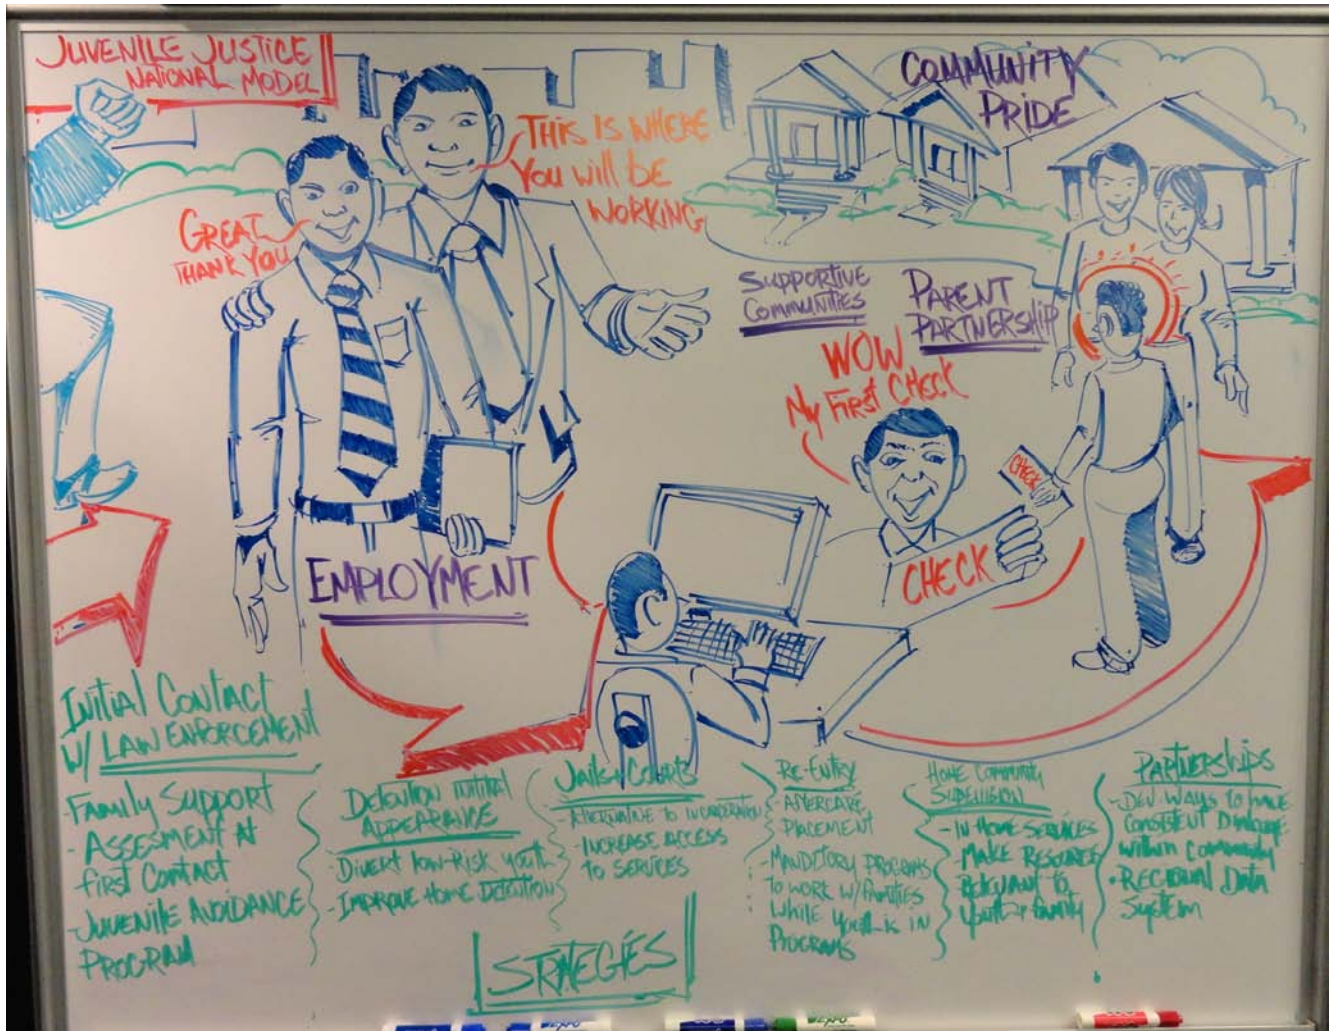 JUVENILE JUSTICE
NATIONAL MODEL
THIS IS WHERE
YOU WILL BE
WORKING
GREAT
THANK YOU
COMMUNITY
PRIDE
SUPPORTIVE
COMMUNITIES
PARENT
PARTNERSHIP
WOW
MY FIRST CHECK
CHECK
CHECK
EMPLOYMENT
INITIAL CONTACT
W/ LAW ENFORCEMENT
- FAMILY SUPPORT
- ASSESMENT AT
FIRST CONTACT
- JUVENILE AVOIDANCE
PROGRAM
DETENTION INITIAL
APPEARANCE
- DIVERT LOW-RISK YOUTH
- IMPROVE HOME DETENTION
JAILS + COURTS
- ALTERNATIVE TO INCARCERATION
- INCREASE ACCESS
TO SERVICES
RE-ENTRY
- AFTERCARE
PLACEMENT
- MANDITORY PROGRAMS
TO WORK W/ FAMILIES
WHILE YOUTH IS IN
PROGRAMS
HOME COMMUNITY
SUPERVISION
- IN HOME SERVICES
- MAKE RESOURCE
RELEVANT TO
YOUTH & FAMILY
PARTNERSHIPS
- DEV WAYS TO HAVE
CONSISTENT DIALOGUE
WITHIN COMMUNITY
• REGIONAL DATA
SYSTEM
STRATEGIES
EXPO
EXPO